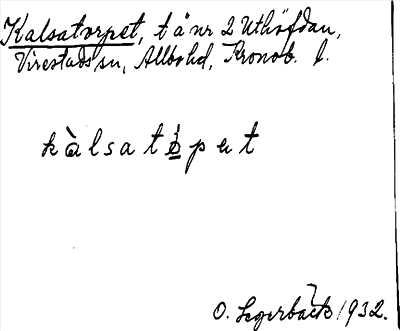 Kalsatorpet, t å nr 2 Uthöfdan,
Virestads sn, Allbo hd, Kronob. l.
kàlsatò̱pet
O. Segerbäck 1932.